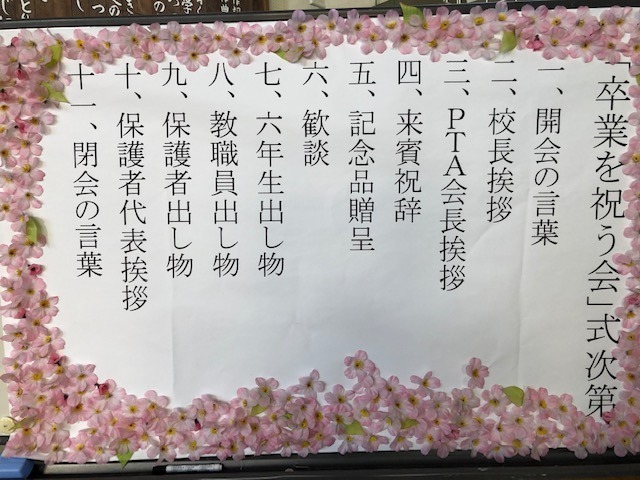 「卒業を祝う会」式次第
一、開会の言葉
二、校長挨拶
三、PTA会長挨拶
四、来賓祝辞
五、記念品贈呈
六、歓談
七、六年生出し物
八、教職員出し物
九、保護者出し物
十、保護者代表挨拶
十一、閉会の言葉